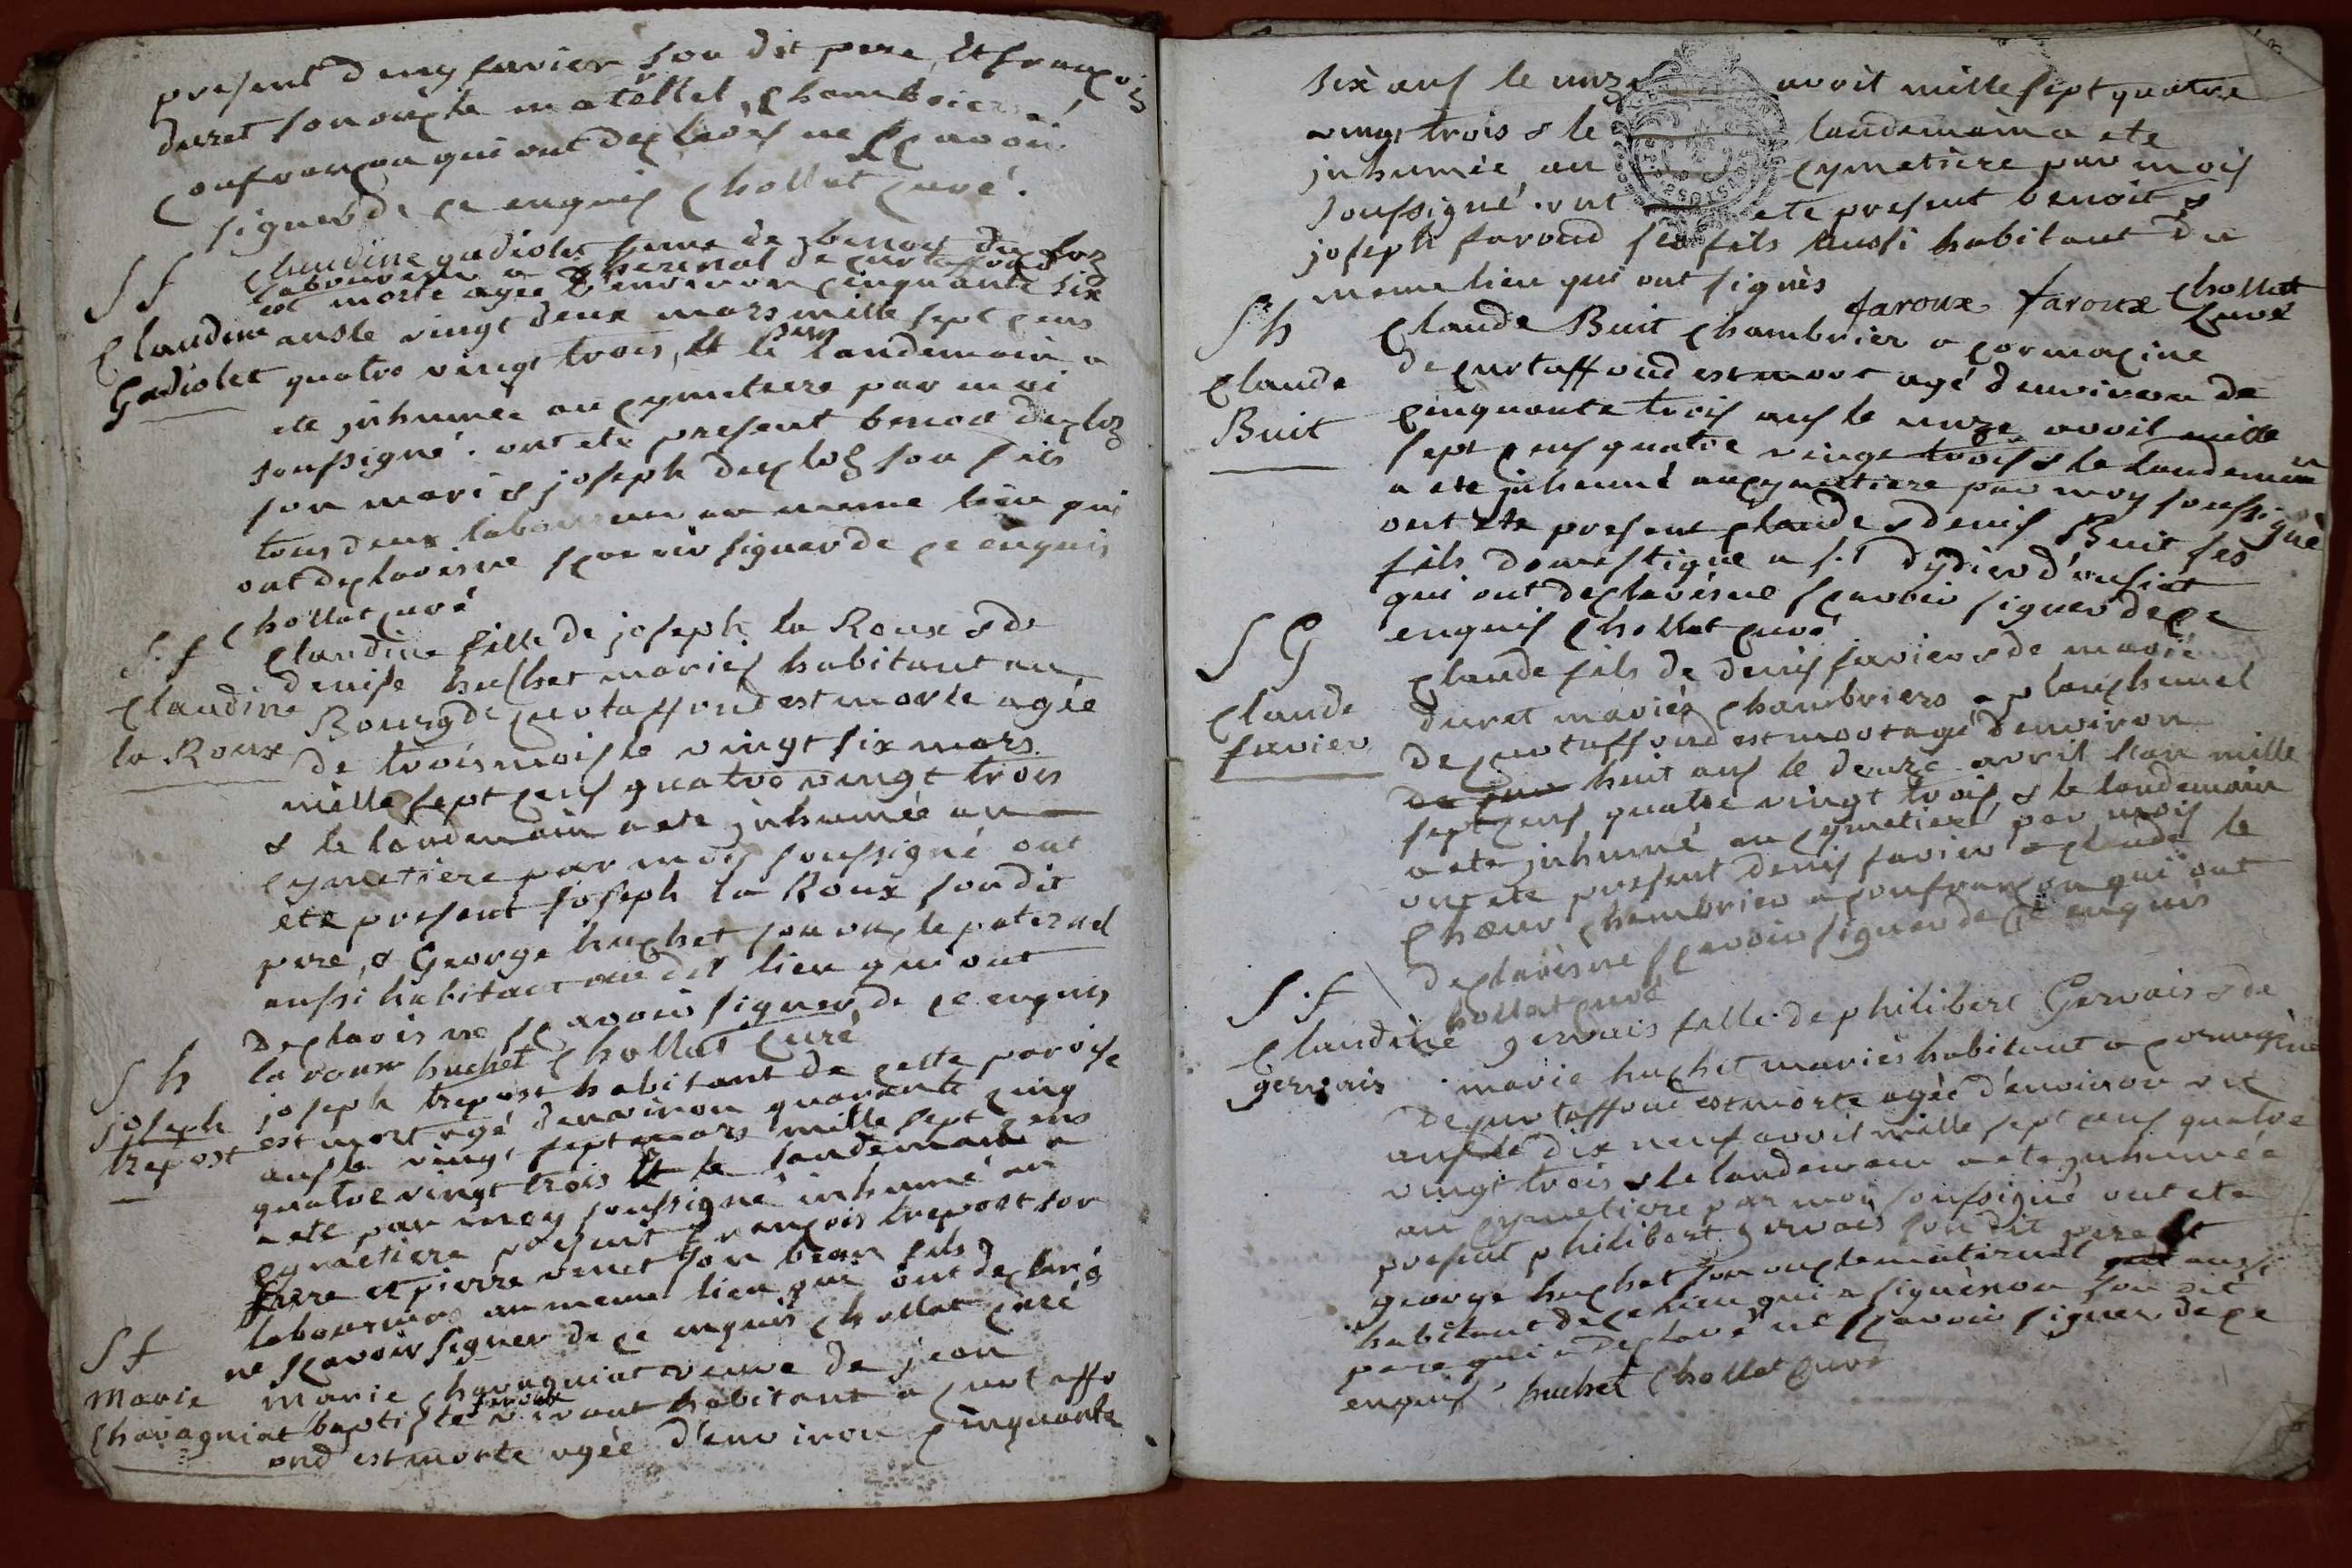 present denys favier son dit pere, Et francois
duret son oncle matellel, chambrier a
confrancon qui ont declares ne scavoir
signer de ce enquis Chollat curé.
S f
Claudine gadiolet feme de benoit decloz
laboureur a de curtaffond
est morte agée d'environ cinquante six
Claudine ans le vingt deux mars mille sept cens
Gadiolet quatre vingt trois, et le landemain a
ete inhumée au cymetiere par moi
soussigné. ont ete present benoit decloz
son mari & joseph decloz son fils
tous deux laboureur au meme lieu qui
ont declarés ne scavoir signer de ce enquis
Chollat curé
S. f Claudine fille de joseph la Roux & de
denise huchet mariés habitant au
Claudine Bourg de curtaffond est morte agée
la Roux de trois mois le vingt six mars
mille sept cens quatre vingt trois
& le landemain a ete inhumée au
cymetiere par moy soussigné ont
ete present joseph la Roux son dit
pere, & George huchet son oncle paternel
aussi habitant au dit lieu qui ont
declaris ne scavoir signer de ce enquis
la roux huchet Chollat Curé
S h joseph trepost habitant de cette paroise
joseph est mort agé d'environ quarante cinq
trepost ans le vingt sept mars mille sept cens
quatre vingt trois & le landemain a
ete par moy soussigné inhumé au
cymetiere present francois trepost son
frere et pierre venet son beau fils
laboureur au meme lieu qui ont declarés
ne scavoir signer de ce enquis chollat curé
S f
Marie Marie chavagniat veuve de jean
Chavagniat baptiste faroux vivant habitant a curtaffo
ond est morte agée d'environ cinquante
six ans le unze avril mille sept quatre
vingt trois & le landemain a ete
inhumée au cymetiere par mois
soussigné. ont ete present benoit &
joseph faroud ses fils aussi habitant du
meme lieu qui ont signès
faroux faroux Chollat
Curé
S h Claude Buit Chambrier a cormacine
Claude de curtaffond est mort agé d'environ de
Buit cinquante trois ans le unze avril mille
sept cens quatre vingt trois & le landemain
a ete inhumé au cymetiere par moy soussigné
ont ete present claude & denis Buit ses
fils domestique a s.t dydier d'aussiat
qui ont declarés ne scavoir signer de ce
enquis Chollat curé
S G Claude fils de denis favier & de marie
Claude duret mariés chambriers a planchemel
favier de curtaffond est mort agé d'environ
huit ans le deuze avril l'an mille
sept cens quatre vingt trois, & le landemain
a ete inhumé au cymetiere par mois
ont ete present denis favier & claude le
chœur chambrier a confrancon qui ont
declarés ne scavoir signer de ce enquis
Chollat curé
S. f
Claudine gervais fille de philibert Gervais & de
gervais marie huchet mariés habitant a cormacine
de curtaffond est morte agée d'environ un
ans le dix neuf avril mille sept cens quatre
vingt trois & le landemain a ete inhumée
au cymetiere par moy soussigné ont ete
present philibert gervais son dit pere Et
george huchet son oncle maternel aussi
habitant de ce lieu qui a signé non son dit
pere qui a declaré ne scavoir signer de ce
enquis. huchet Chollat curé